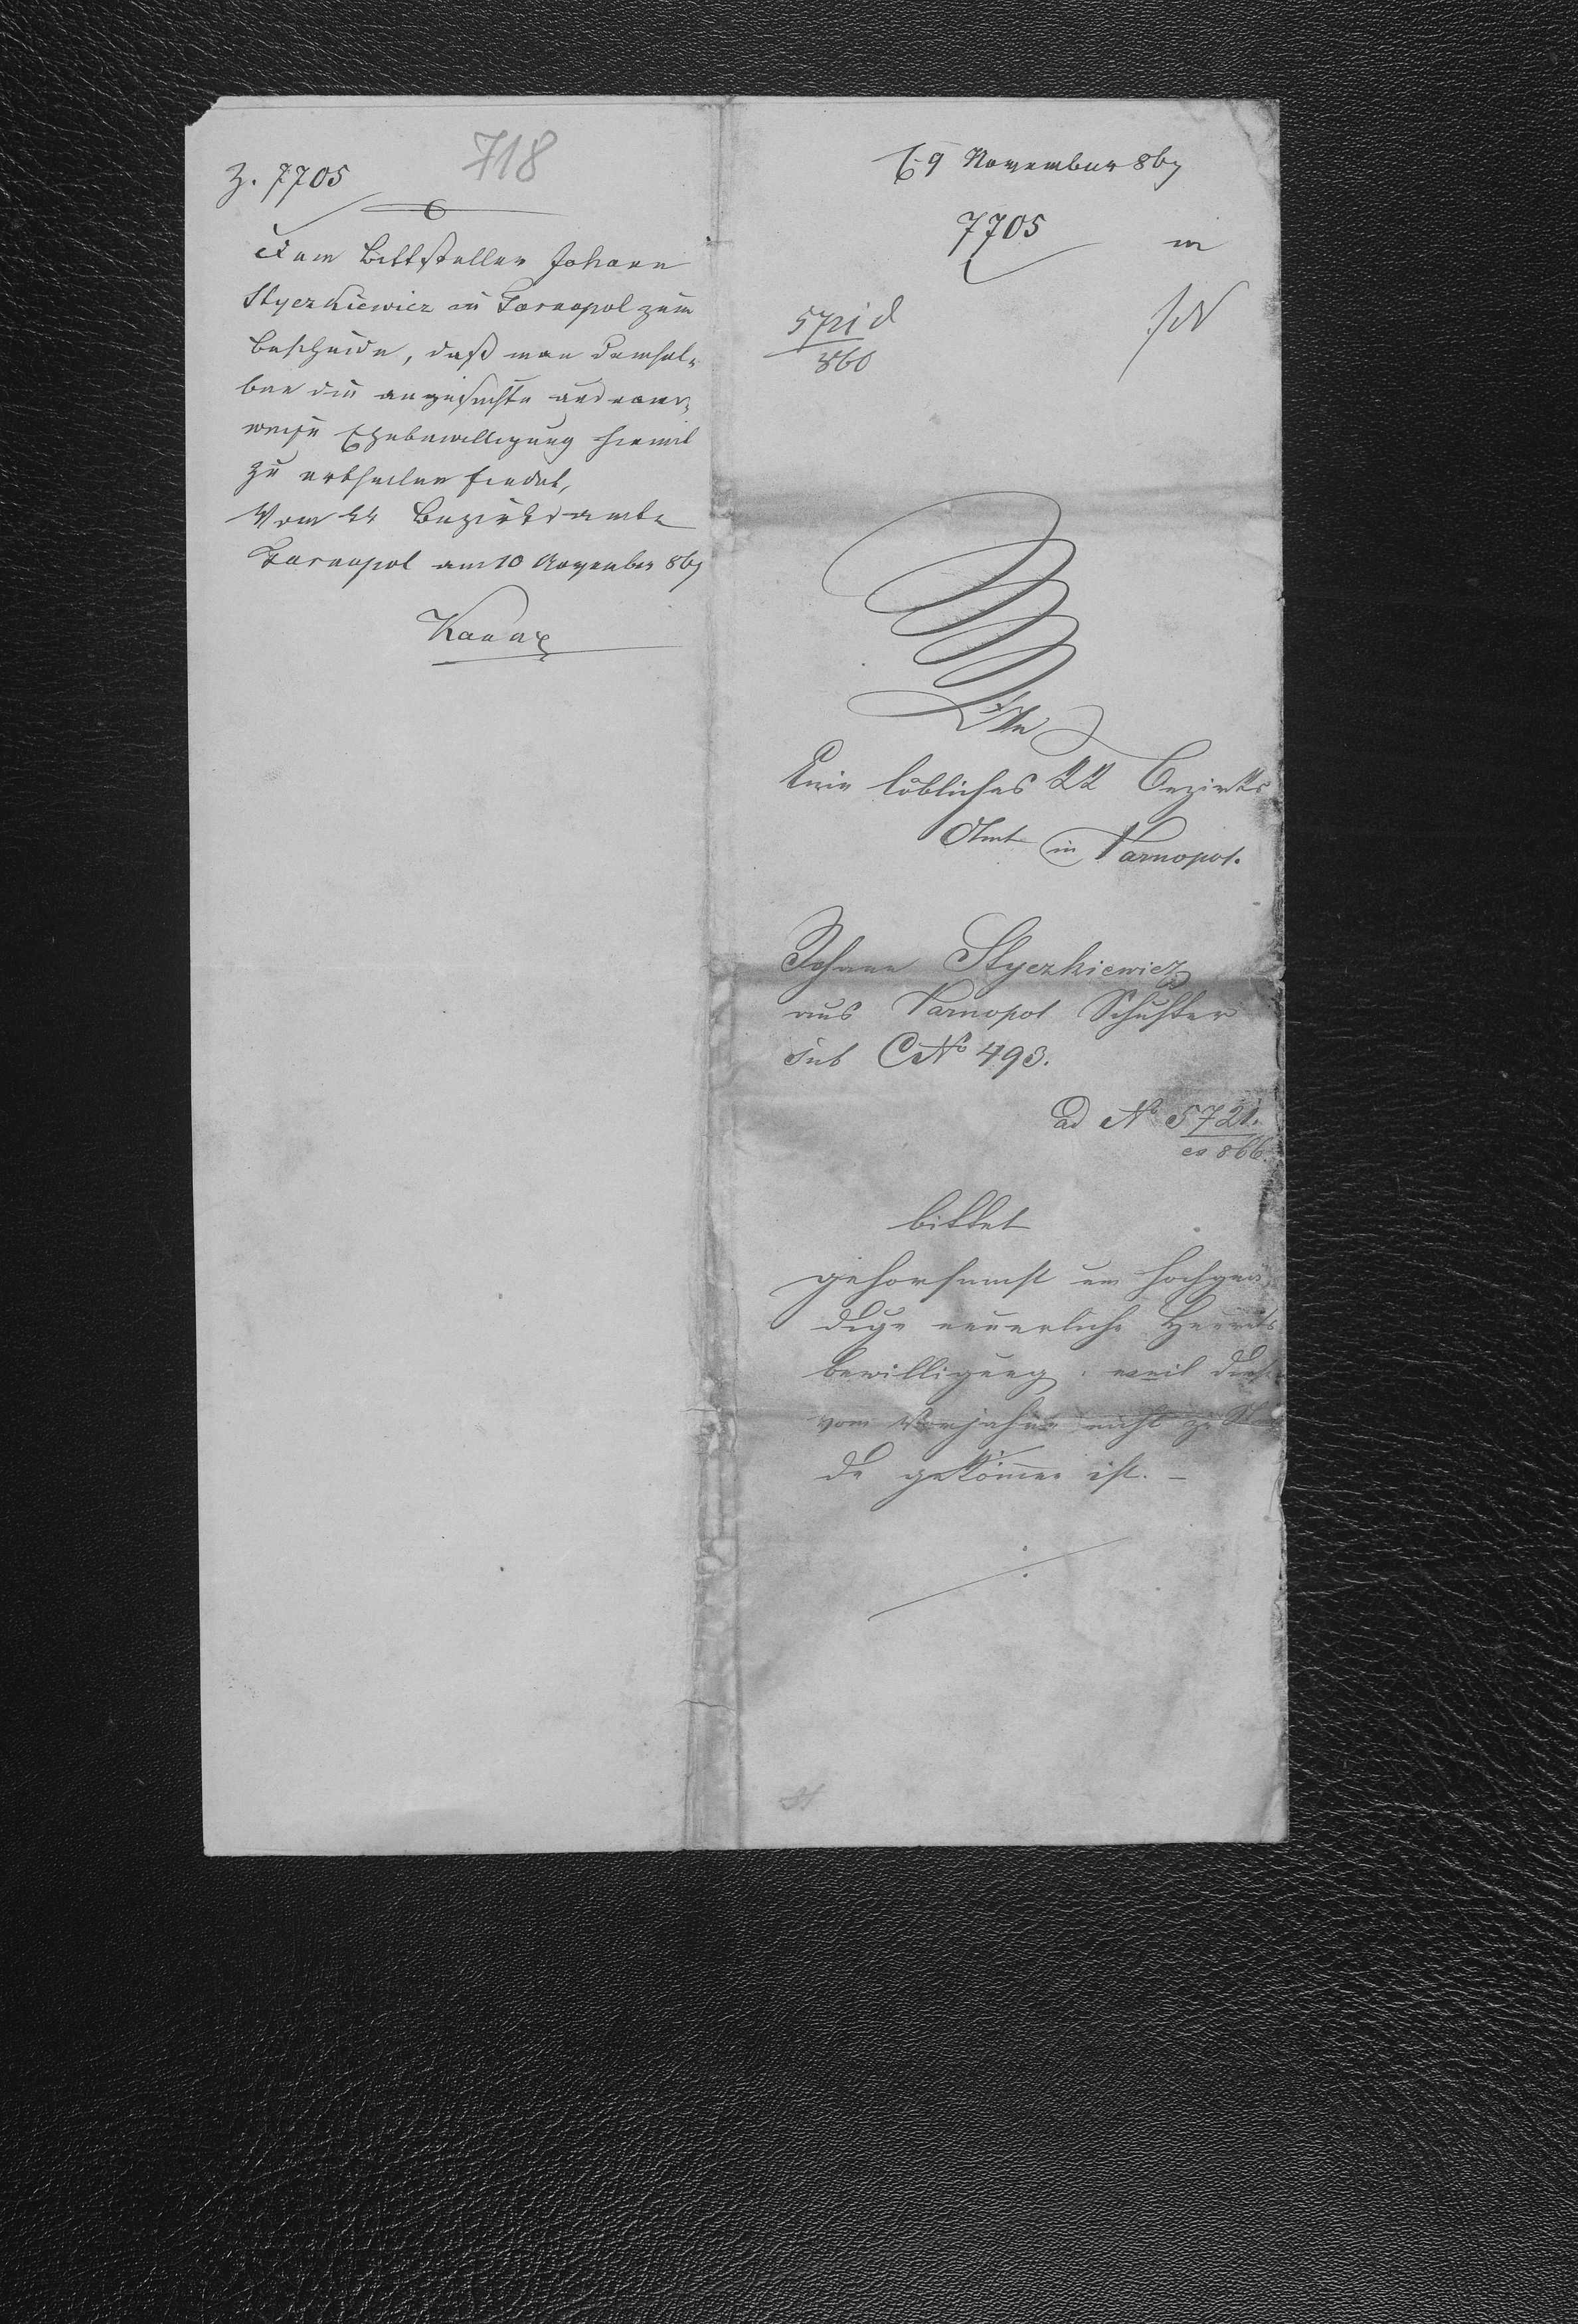 718
Z. 7705
Dem Bittsteller Johann
Styczkiewicz in Tarnopol zum
Bescheide, daß man demsel-
ben die angesuchte
weise Ehebewilligung hiemit
zu ertheilen findet,
Vom kk Bezirksamte
Tarnopol am 10 November 867
9 November 867
7705
5721
866
An
Ein löbliches KK Bezirks
Amt in Tarnopol.
Johann Styczkiewicz
aus Tarnopol Schuster
sub CNo 493.
ad No 5721.
ex 866.
bittet
gehorsamst um hochgnä
dige neuerliche Heurats
bewilligung, weil diese
vom Vorjahre nicht zu Stan
de gekommen ist. –